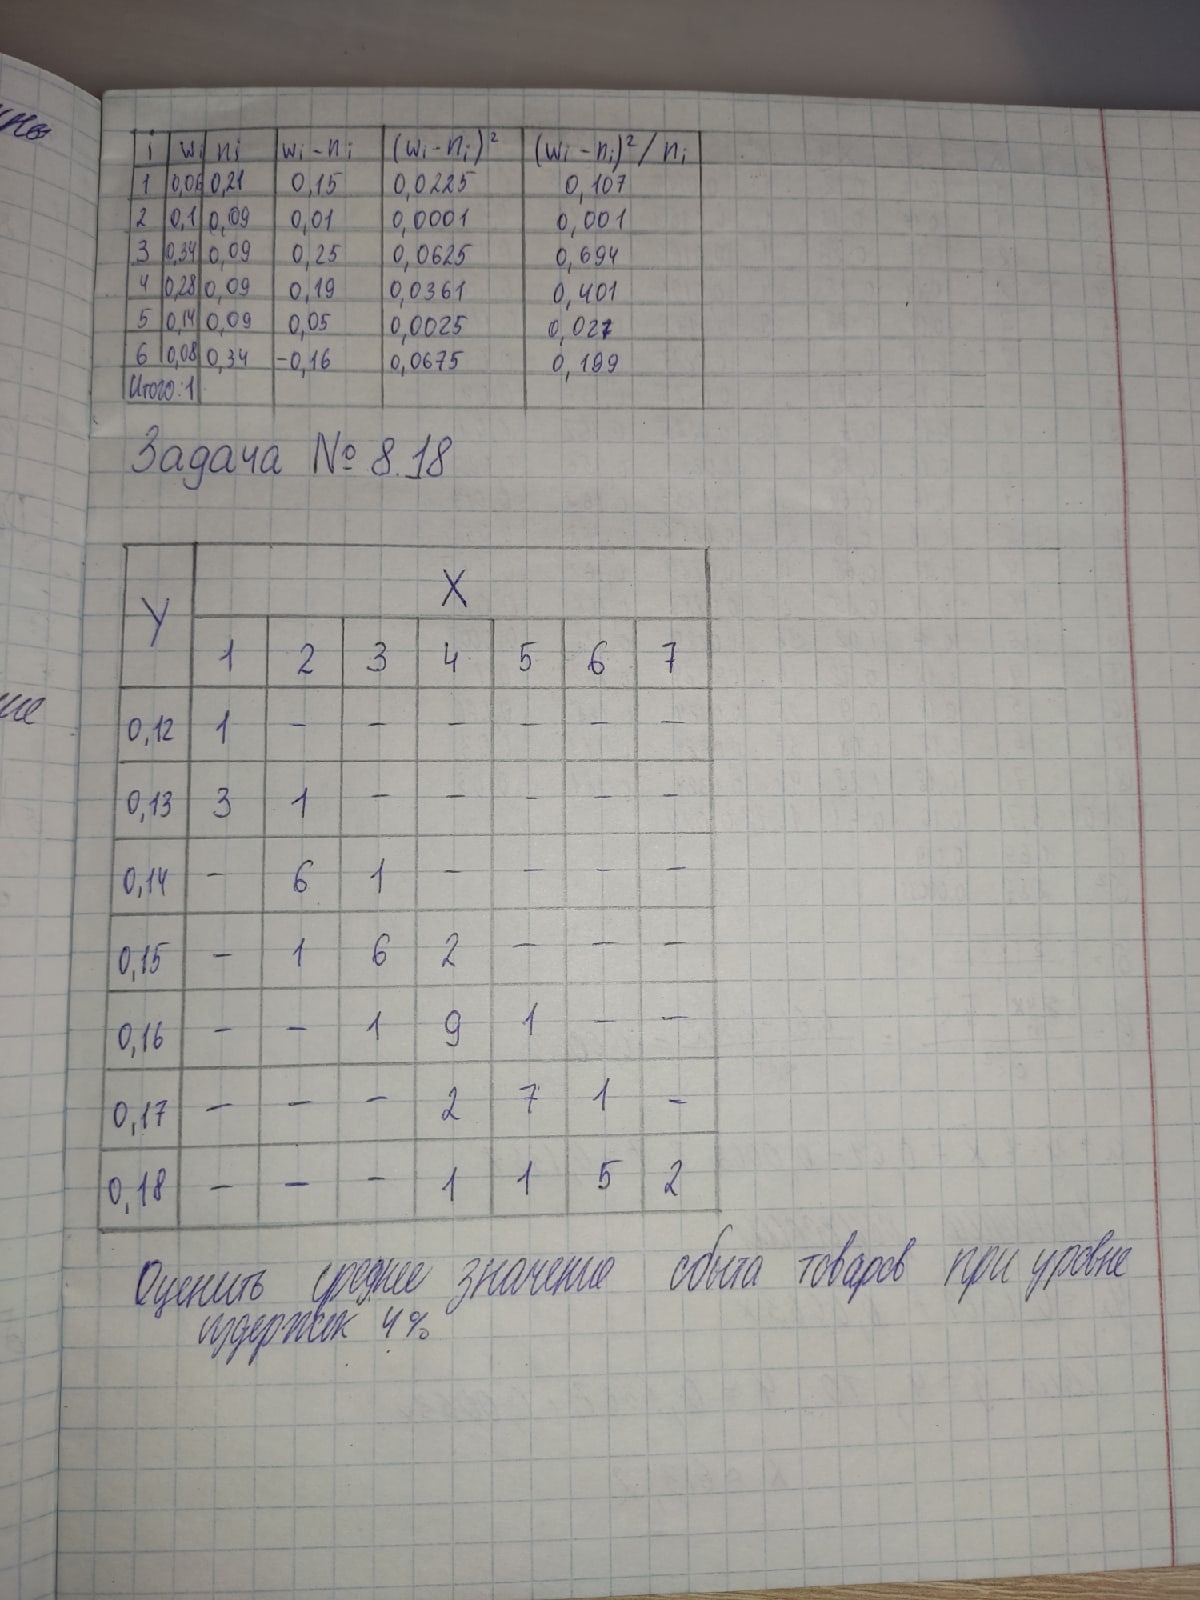 i wi ni wi - ni (wi - ni)² (wi - ni)² / ni
1 0,06 0,21 0,15 0,0225 0,107
2 0,1 0,09 0,01 0,0001 0,001
3 0,34 0,09 0,25 0,0625 0,694
4 0,28 0,09 0,19 0,0361 0,401
5 0,14 0,09 0,05 0,0025 0,027
6 0,08 0,34 -0,16 0,0675 0,199
Итого: 1
Задача № 8.18
Y X
1 2 3 4 5 6 7
0,12 1 - - - - - -
0,13 3 1 - - - - -
0,14 - 6 1 - - - -
0,15 - 1 6 2 - - -
0,16 - - 1 9 1 - -
0,17 - - - 2 7 1 -
0,18 - - - 1 1 5 2
Оценить среднее значение сбыта товаров при уровне
издержек 4%